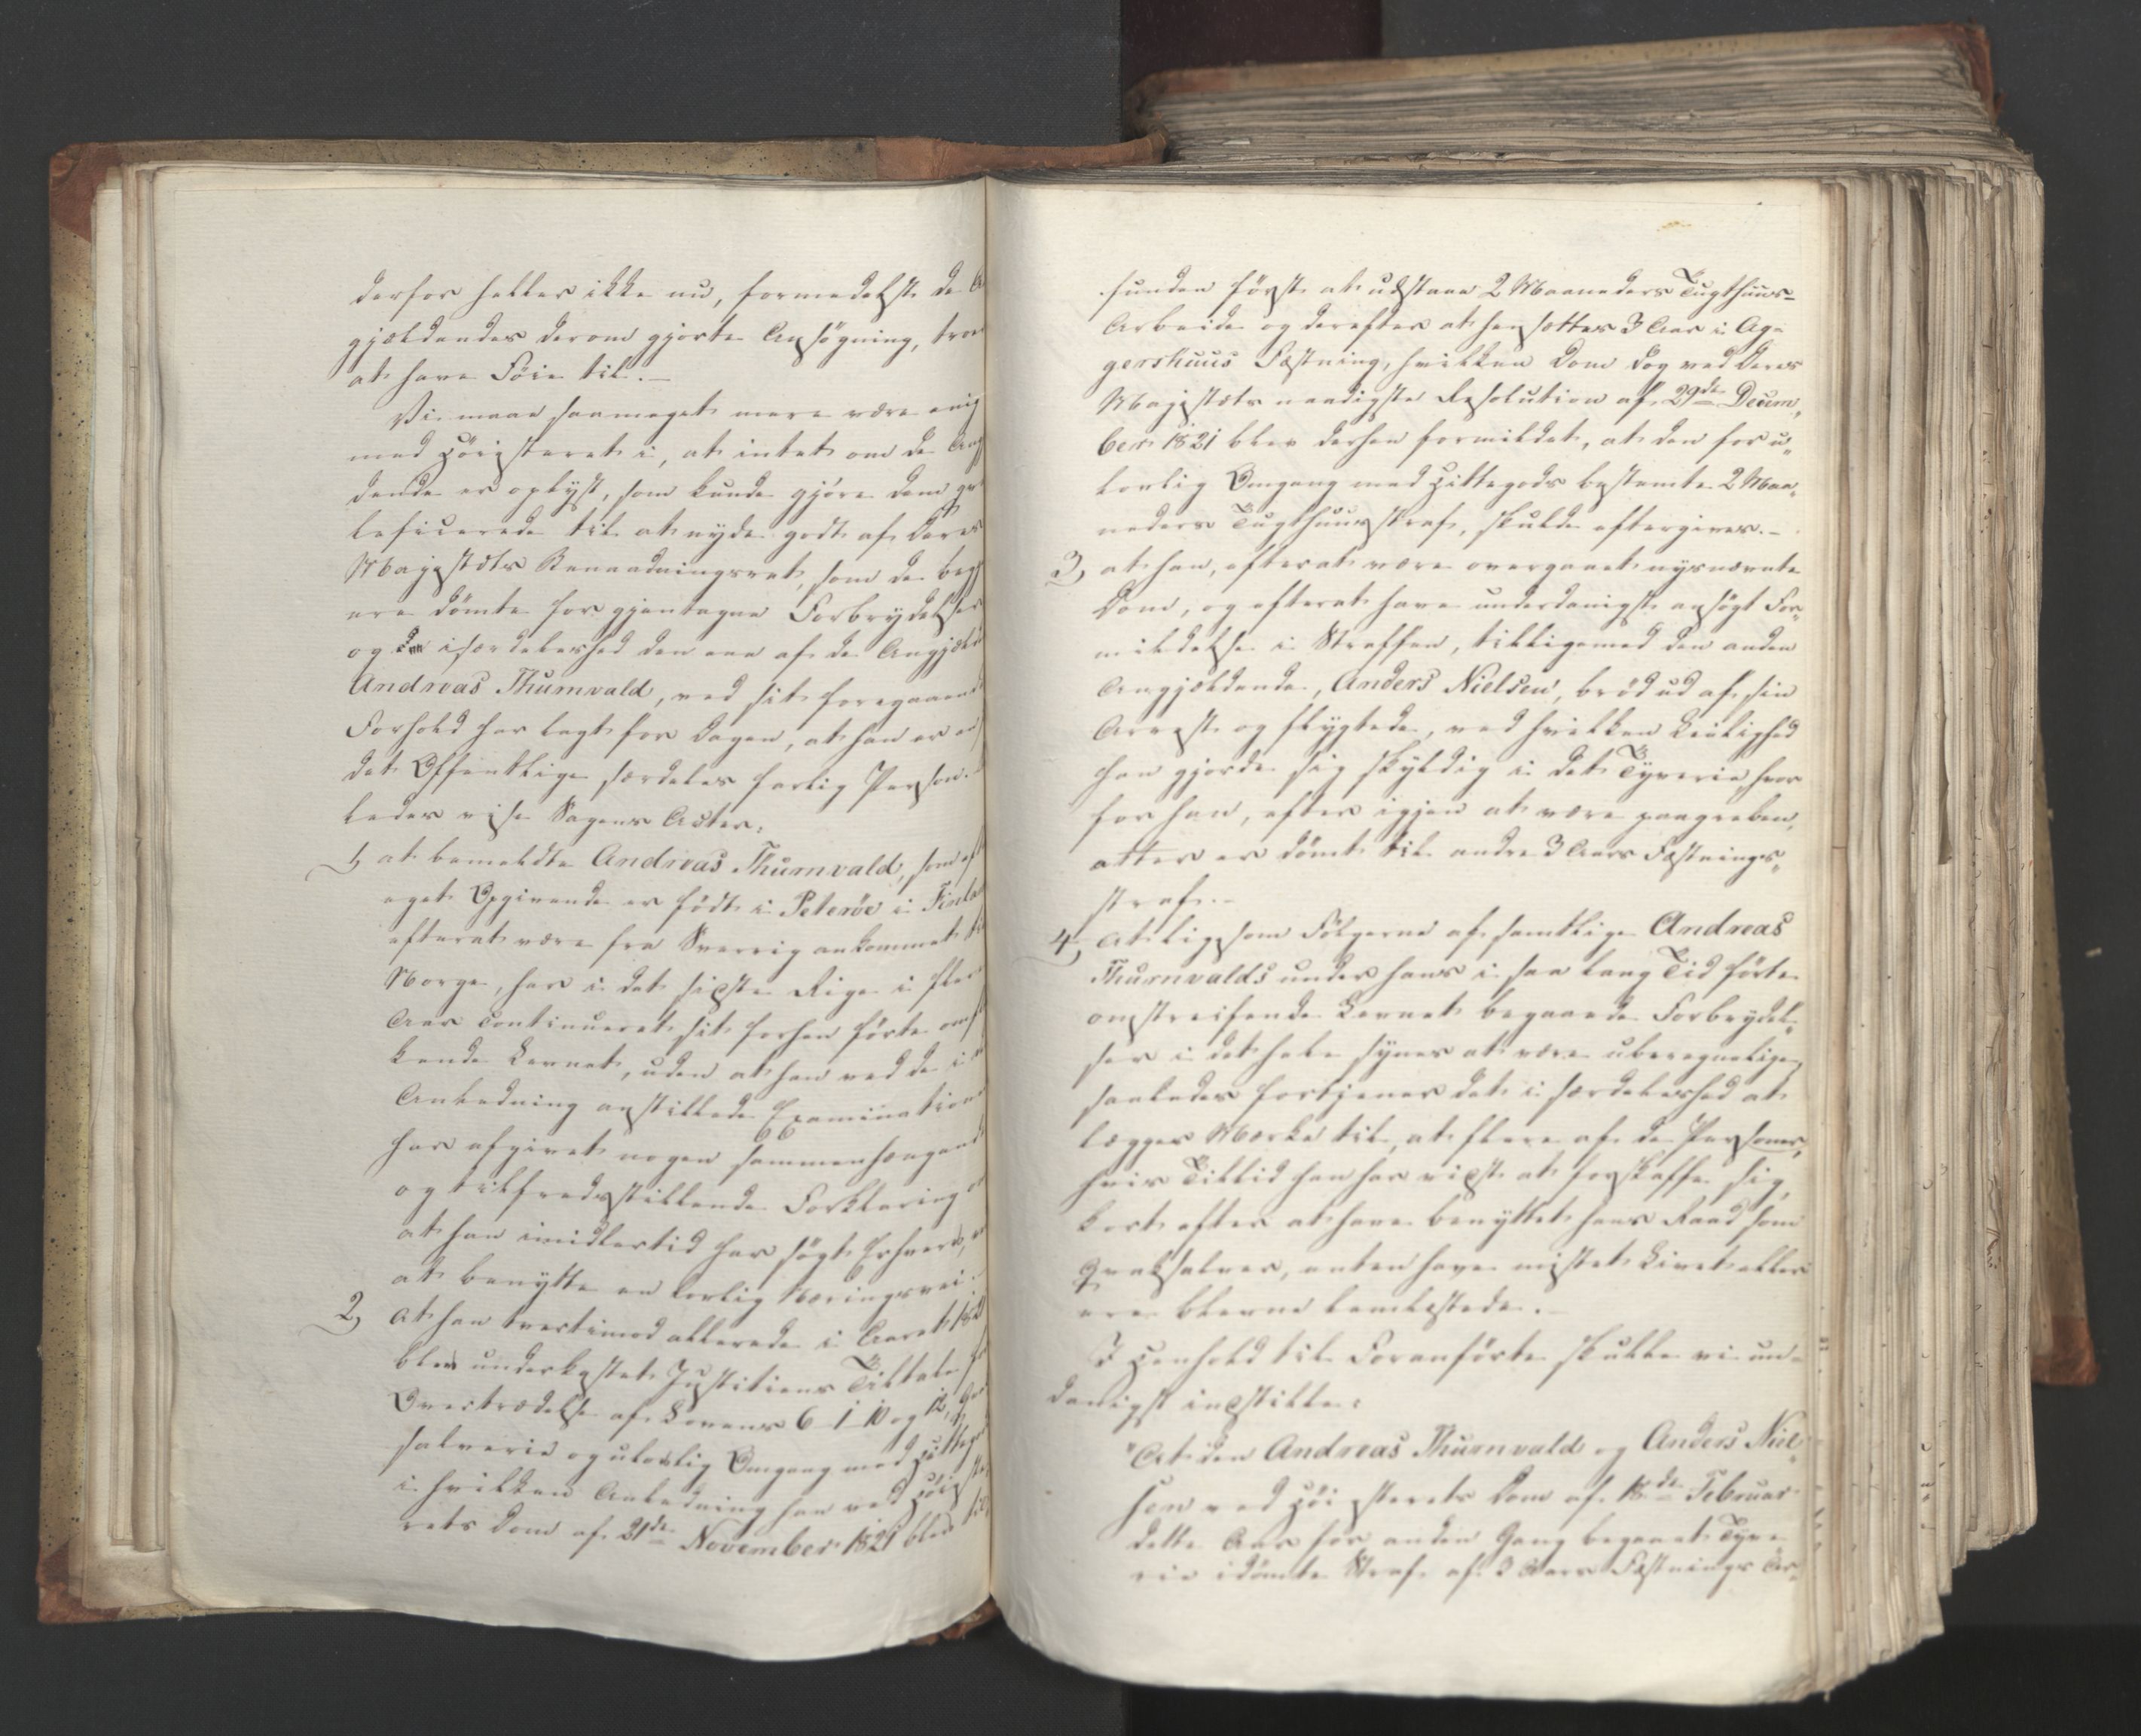 derfor heller ikke nu, formedelst de A
gjældendes derom gjorte Ansøgning, troe
at have Föie til. —
Vi maae saameget mere være enig
med Höiesteret i, at intet om de Ang
dende er oplyst, som kunde gjöre dem qva
lificerede til at nyde godt af Deres
Majestæts Benaadningsret, som de begge
ere dömte for gjentagne Forbrydelser
og isærdeleshed den ene af de Angjæld
Andreas Thurnvald, ved sit foregaaende
Forhold har lagt for Dagen, at han er en
det Offentlige særdeles farlig Person.
ledes vise Sagens Acter:
1, at bemeldte Andreas Thurnvald, som eft
eget Opgivende er födt i Peteröe i Finla
efterat være fra Sverrig ankommet til
Norge, har i det sidste Rige i flere
Aar continueret sit forhen förte omfl
kende Levnet, uden at han ved de i
Anledning anstillede Examinationer
har afgivet nogen sammenhængende
og tilfredsstillende Forklaring
at han imidlertid har sögt Erhverv, v
at benytte en lovlig Næringsvei.
2, at han tvertimod allerede i Aaret 182
blev underkastet Justitiens Tiltale for
Overtrædelse af Lovens 6-1-10 og 12, Qvak
salverie og ulovlig Omgang med Hittegods
i hvilken Anledning han ved Höieste
rets Dom af 21de November 1821 blev til
funden först at udstaae 2 Maaneders Tugthuus-
Arbeide og derefter at hensættes 3 Aar i Ag-
gershuus Fæstning, hvilken Dom dog ved Deres
Majestæts naadigste Resolution af 29de Decem-
ber 1821 blev derhen formildet, at den for u-
lovlig Omgang med Hittegods bestemte 2 Maa-
neders Tugthuusstraf, skulde eftergives. —
3, at han, efterat være overgaaet nysnævnte
Dom, og efterat have underdanigst ansögt For-
mildelse i Straffen, tilligemed den anden
Angjældende, Anders Nielsen, bröd ud af sin
Arrest og flygtede, ved hvilken Leilighed
han gjorde sig skyldig i det Tyverie, hvor
for han, efter igjen at være paagreben,
atter er dömt til andre 3 Aars Fæstnings-
straf. —
4, at ligesom Fölgerne af samtlige Andreas
Thurnvalds under hans i saa lang Tid förte
omstreifende Levnet begaaede Forbrydel-
ser i det hele synes at være uberegnelige,
saaledes fortjener det i særdeleshed at
lægges Mærke til, at flere af de Personer,
hvis Tillid han har vidst at forskaffe sig,
kort efter at have benyttet hans Raad som
Qvaksalver, enten have mistet Livet eller
ere blevne lemlæstede. —
I Henhold til Foranförte skulle vi un-
danigst indstille:
"At den Andreas Thurnvald og Anders Niel-
sen ved Höiesterets Dom af 18de Februar
dette Aar for anden Gang begaaet Tyve-
rie idömte Straf af 3 Aars Fæstnings Ar-